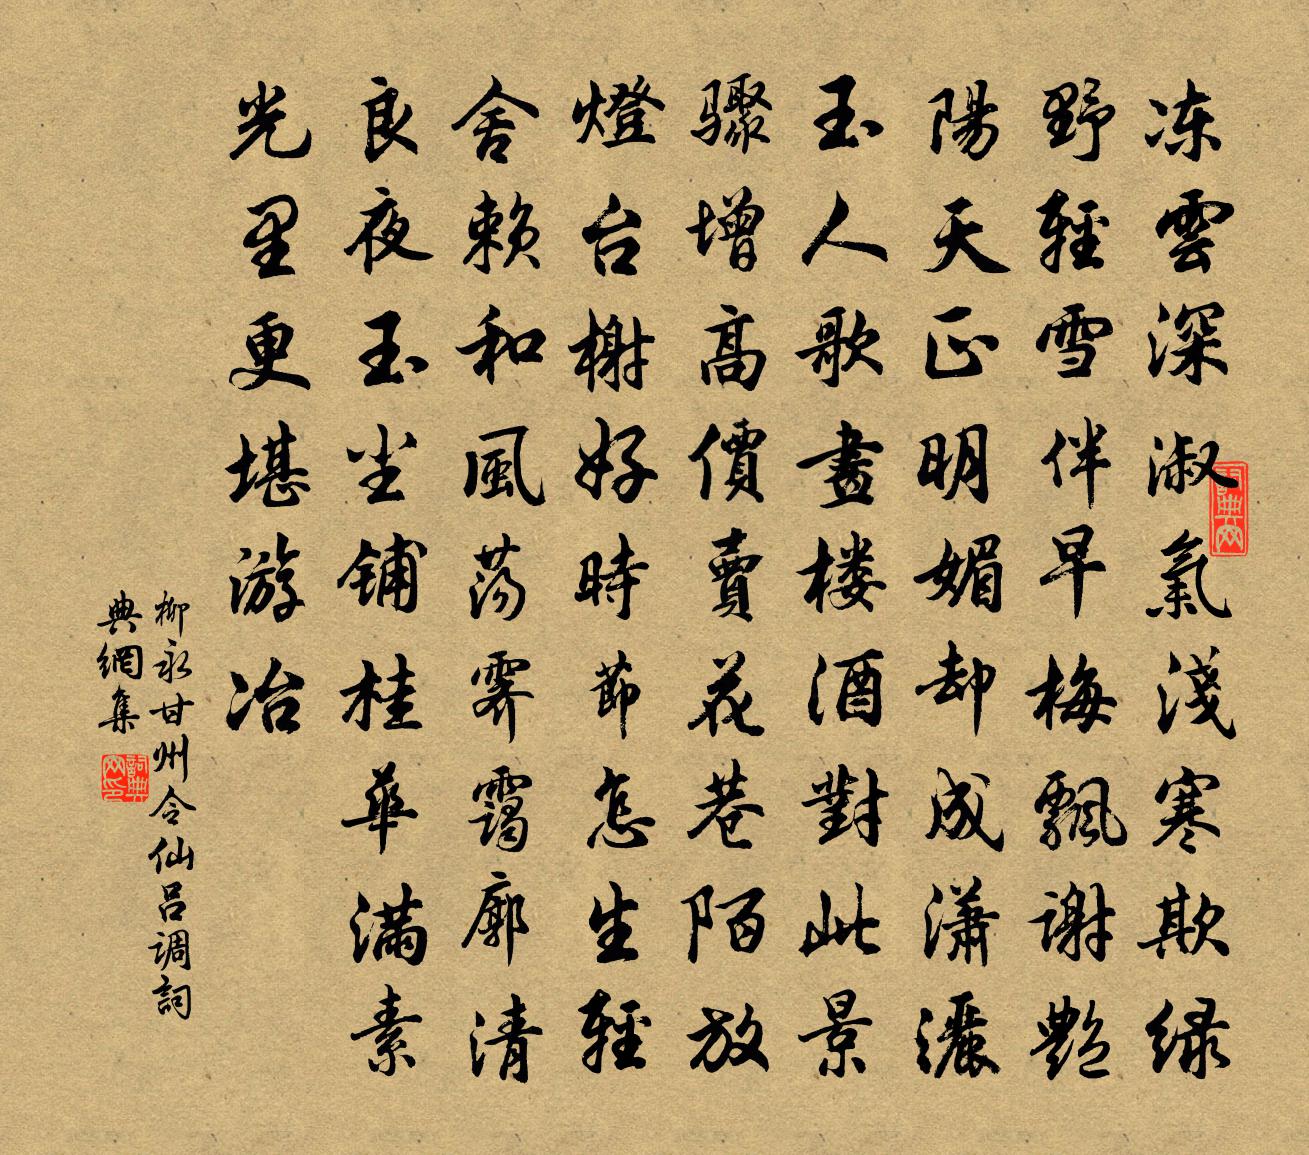 冻雲深淑氣淺寒欺绿
野輕雪伴早梅飄谢艷
陽天正明媚却成潇灑
玉人歌畫楼酒對此景
驟增高價賣花巷陌放
燈台榭好時節怎生輕
舍赖和風荡霁靄廓清
良夜玉尘铺桂華满素
光里更堪游冶
柳永甘州令仙吕调詞
典網集
詞典网
詞典网印